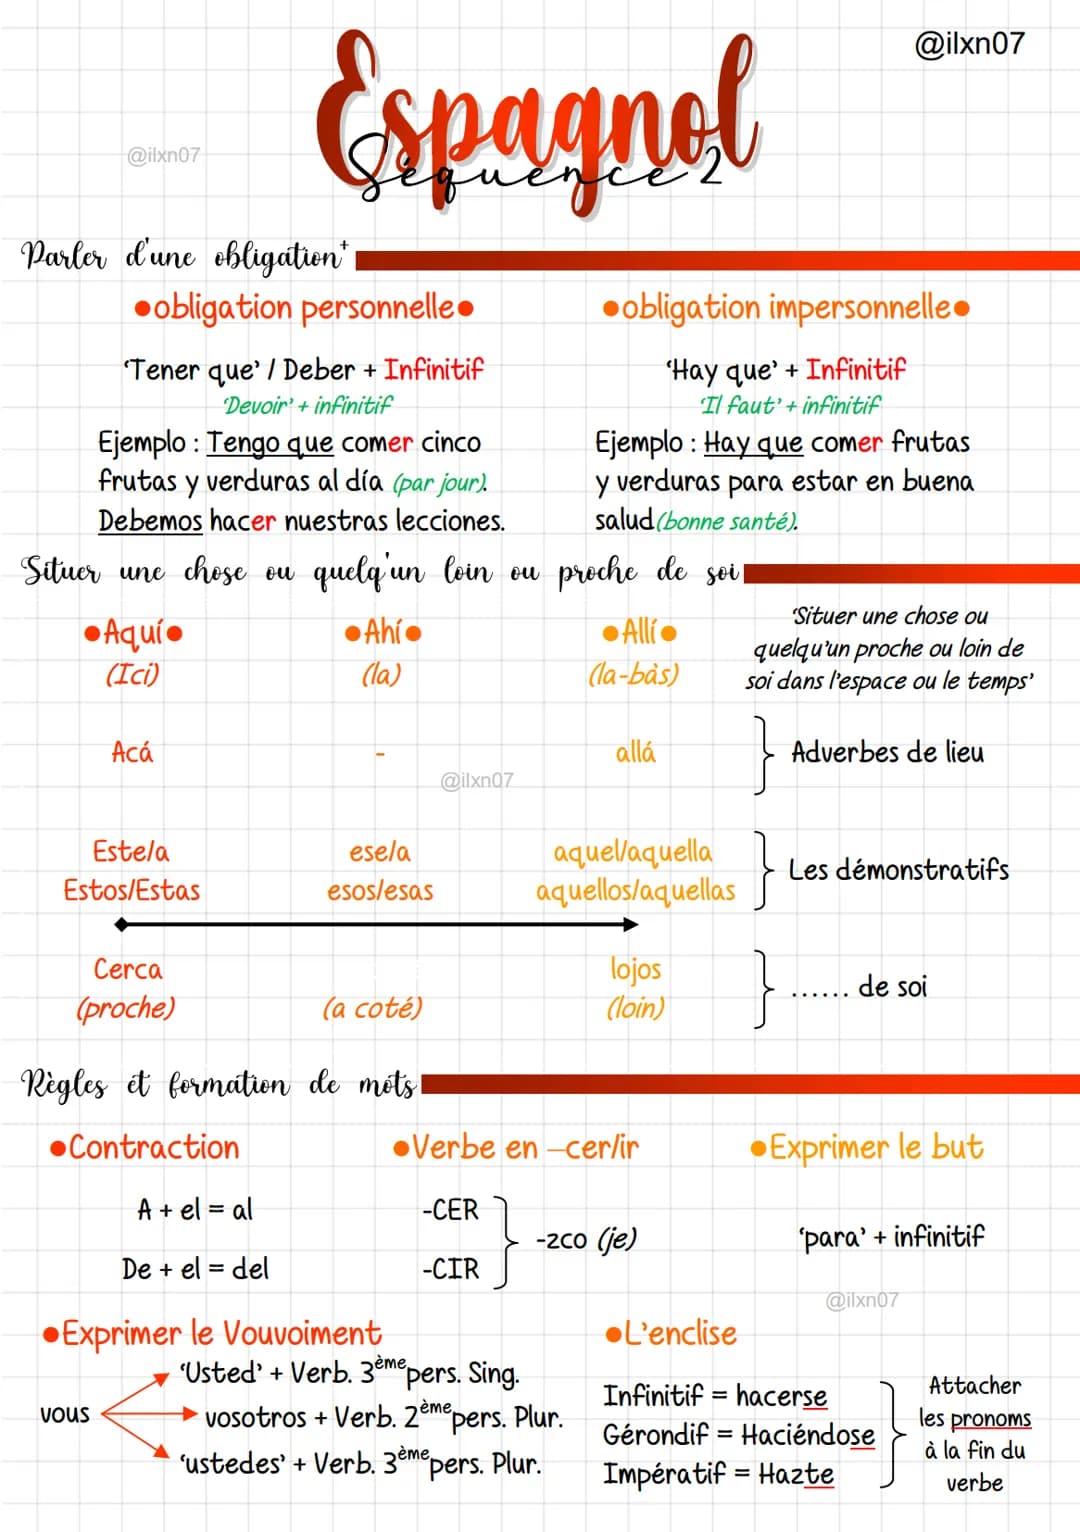 @ilxn07
Espagnol
@ilxn07
Séquence 2
Parler d'une obligation⁺
●obligation personnelle●
●obligation impersonnelle●
‘Tener que’ / Deber + Infinitif
‘Devoir’ + infinitif
Ejemplo : Tengo que comer cinco
frutas y verduras al día (par jour).
Debemos hacer nuestras lecciones.
‘Hay que’ + Infinitif
‘Il faut’ + infinitif
Ejemplo : Hay que comer frutas
y verduras para estar en buena
salud (bonne santé).
Situer une chose ou quelq'un loin ou proche de soi
●Aquí●
●Ahí●
●Allí●
(Ici)
(la)
(la-bàs)
‘Situer une chose ou
quelqu’un proche ou loin de
soi dans l’espace ou le temps’
Acá
-
allá
Adverbes de lieu
@ilxn07
Este/a
ese/a
aquel/aquella
Estos/Estas
esos/esas
aquellos/aquellas
Les démonstratifs
Cerca
lojos
(proche)
(a coté)
(loin)
...... de soi
Règles et formation de mots
●Contraction
●Verbe en –cer/ir
●Exprimer le but
A + el = al
De + el = del
-CER
-CIR
-zco (je)
‘para’ + infinitif
@ilxn07
●Exprimer le Vouvoiment
●L'enclise
vous
‘Usted’ + Verb. 3ème pers. Sing.
vosotros + Verb. 2ème pers. Plur.
‘ustedes’ + Verb. 3ème pers. Plur.
Infinitif = hacerse
Gérondif = Haciéndose
Impératif = Hazte
Attacher
les pronoms
à la fin du
verbe